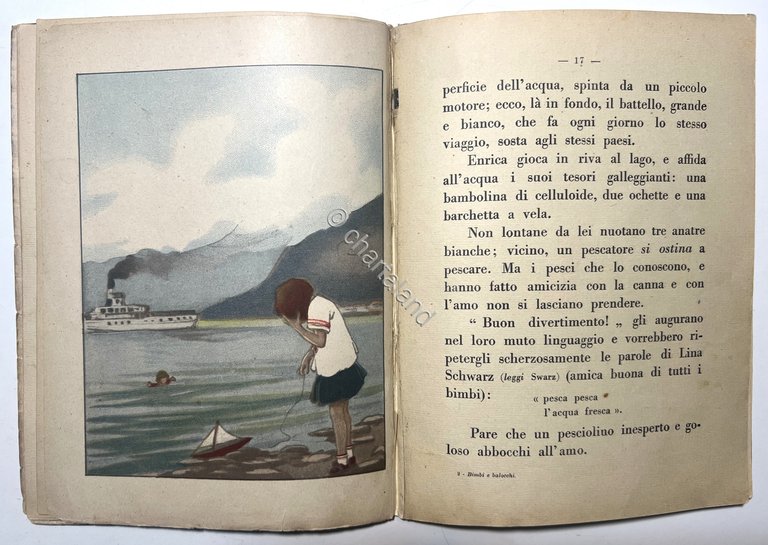 — 17 —
perficie dell'acqua, spinta da un piccolo
motore; ecco, là in fondo, il battello, grande
e bianco, che fa ogni giorno lo stesso
viaggio, sosta agli stessi paesi.
Enrica gioca in riva al lago, e affida
all'acqua i suoi tesori galleggianti: una
bambolina di celluloide, due ochette e una
barchetta a vela.
Non lontane da lei nuotano tre anatre
bianche; vicino, un pescatore si ostina a
pescare. Ma i pesci che lo conoscono, e
hanno fatto amicizia con la canna e con
l'amo non si lasciano prendere.
“ Buon divertimento! „ gli augurano
nel loro muto linguaggio e vorrebbero ri-
petergli scherzosamente le parole di Lina
Schwarz (leggi Swarz) (amica buona di tutti i
bimbi):
« pesca pesca
l'acqua fresca ».
Pare che un pesciolino inesperto e go-
loso abbocchi all'amo.
2 - Bimbi e balocchi.
© chartaland